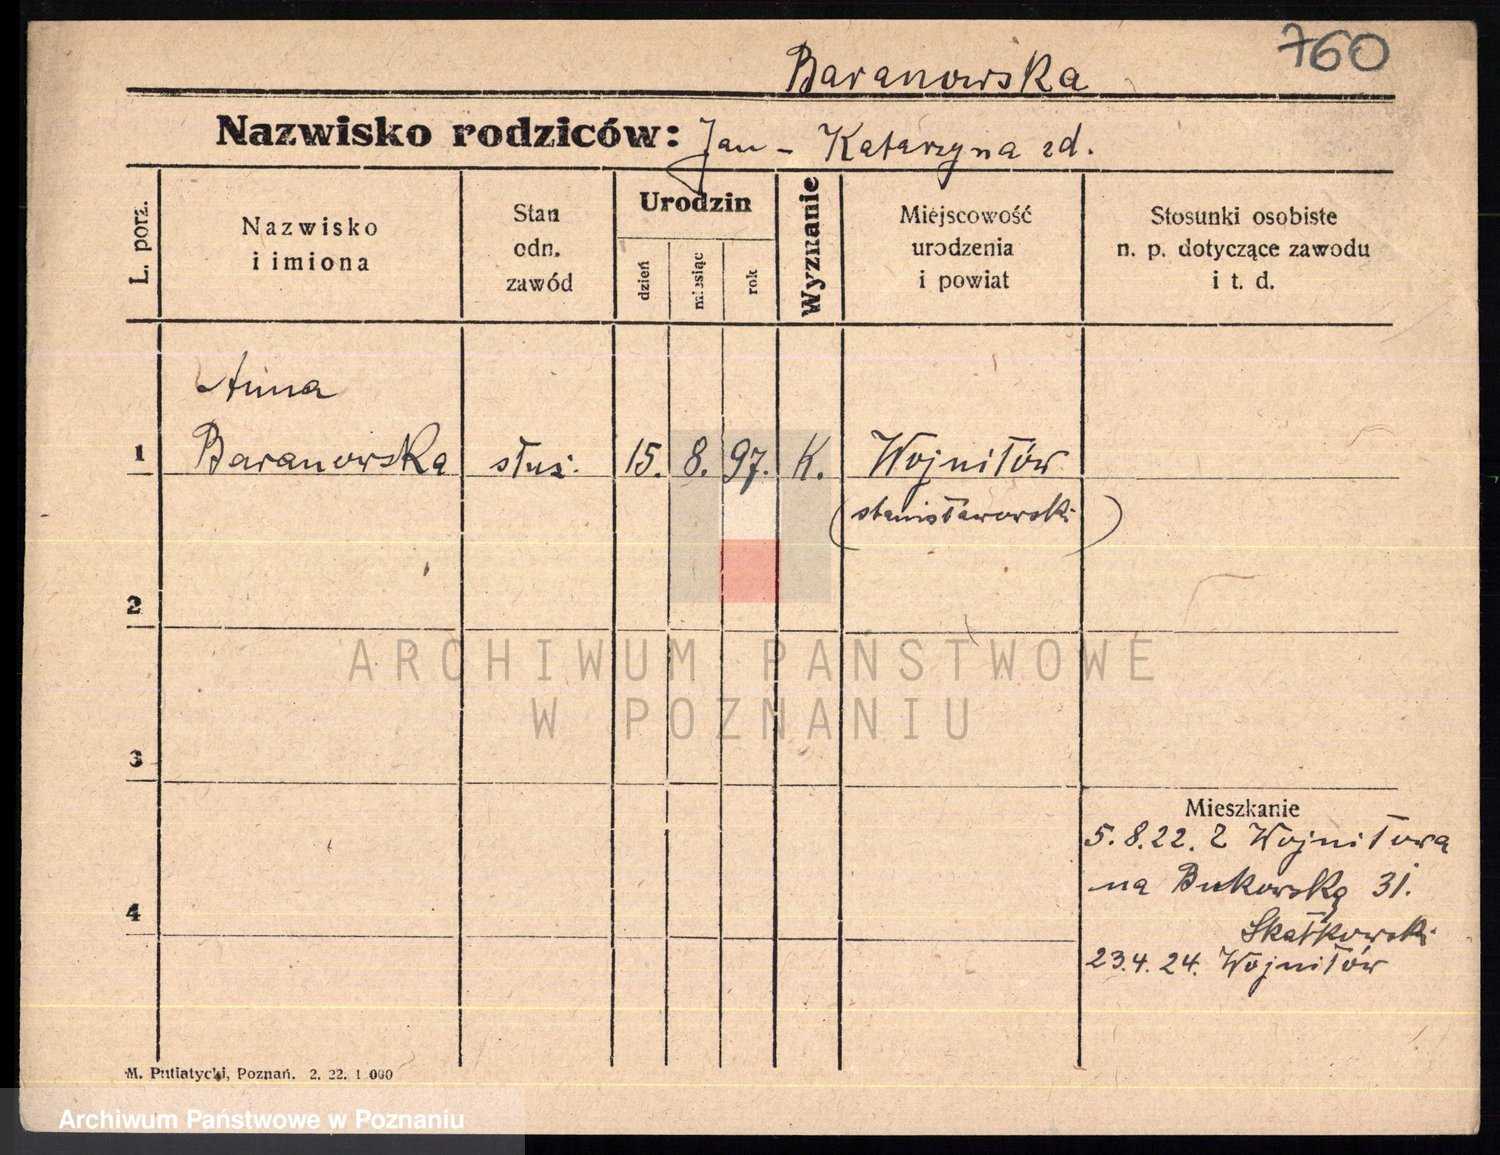 760
Baranowska
Nazwisko rodziców: Jan - Katarzyna zd.
L. porz.
Nazwisko
i imiona
Stan
odn.
zawód
Urodzin
dzień
miesiąc
rok
Wyznanie
Miejscowość
urodzenia
i powiat
Stosunki osobiste
n. p. dotyczące zawodu
i t. d.
Anna
1 Baranowska służ. 15. 8. 97. K. Wojniłów
(stanisławowski)
2
3
4
Mieszkanie
5.8.22. Z Wojniłowa
na Bukowską 31.
Skałkowski
23.4.24. Wojniłów
M. Putiatycki, Poznań. 2. 22. 1 000
ARCHIWUM PAŃSTWOWE
W POZNANIU
Archiwum Państwowe w Poznaniu